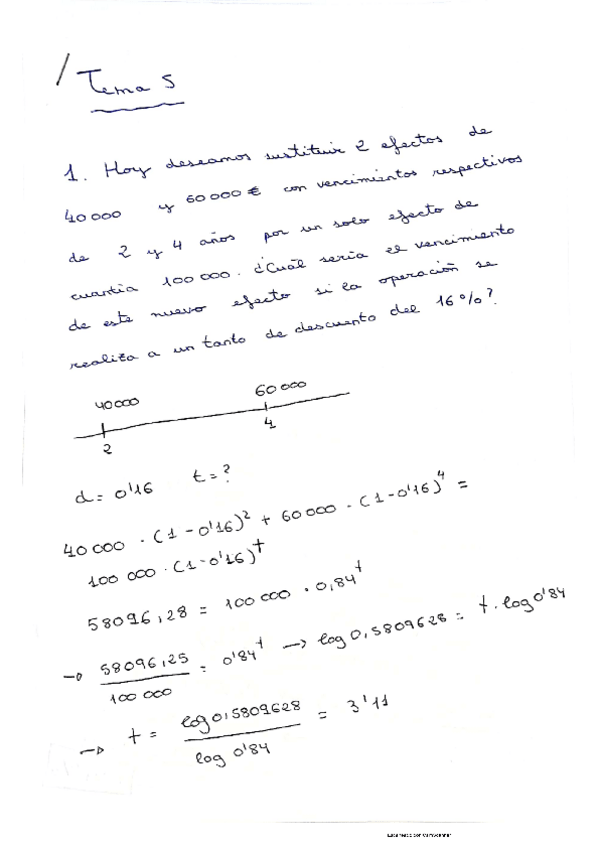 / Tema 5
1. Hoy deseamos sustituir 2 efectos de
40 000 y 60 000 € con vencimientos respectivos
de 2 y 4 años por un solo efecto de
cuantía 100 000. ¿Cuál sería el vencimiento
de este nuevo efecto si la operación se
realiza a un tanto de descuento del 16%?
40 000 60 000
2 4
d = 0'16 t = ?
40 000 · (1 - 0'16)² + 60 000 · (1 - 0'16)⁴ =
100 000 · (1 - 0'16)^t
58096,28 = 100 000 · 0,84^t
→ 58096,25 / 100 000 = 0'84^t → log 0,5809628 = t · log 0'84
→ t = log 0,5809628 / log 0'84 = 3'11